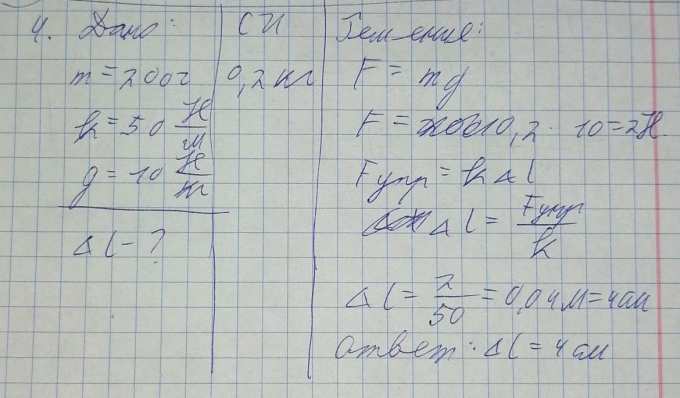 4. Дано:
m = 200г
k = 50 Н/м
g = 10 Н/кг
Δl - ?
СИ
0,2 кг
Решение:
F = mg
F = 0,2 · 10 = 2Н.
Fупр = k Δl
Δl = Fупр/k
Δl = 2/50 = 0,04м = 4см
Ответ: Δl = 4 см